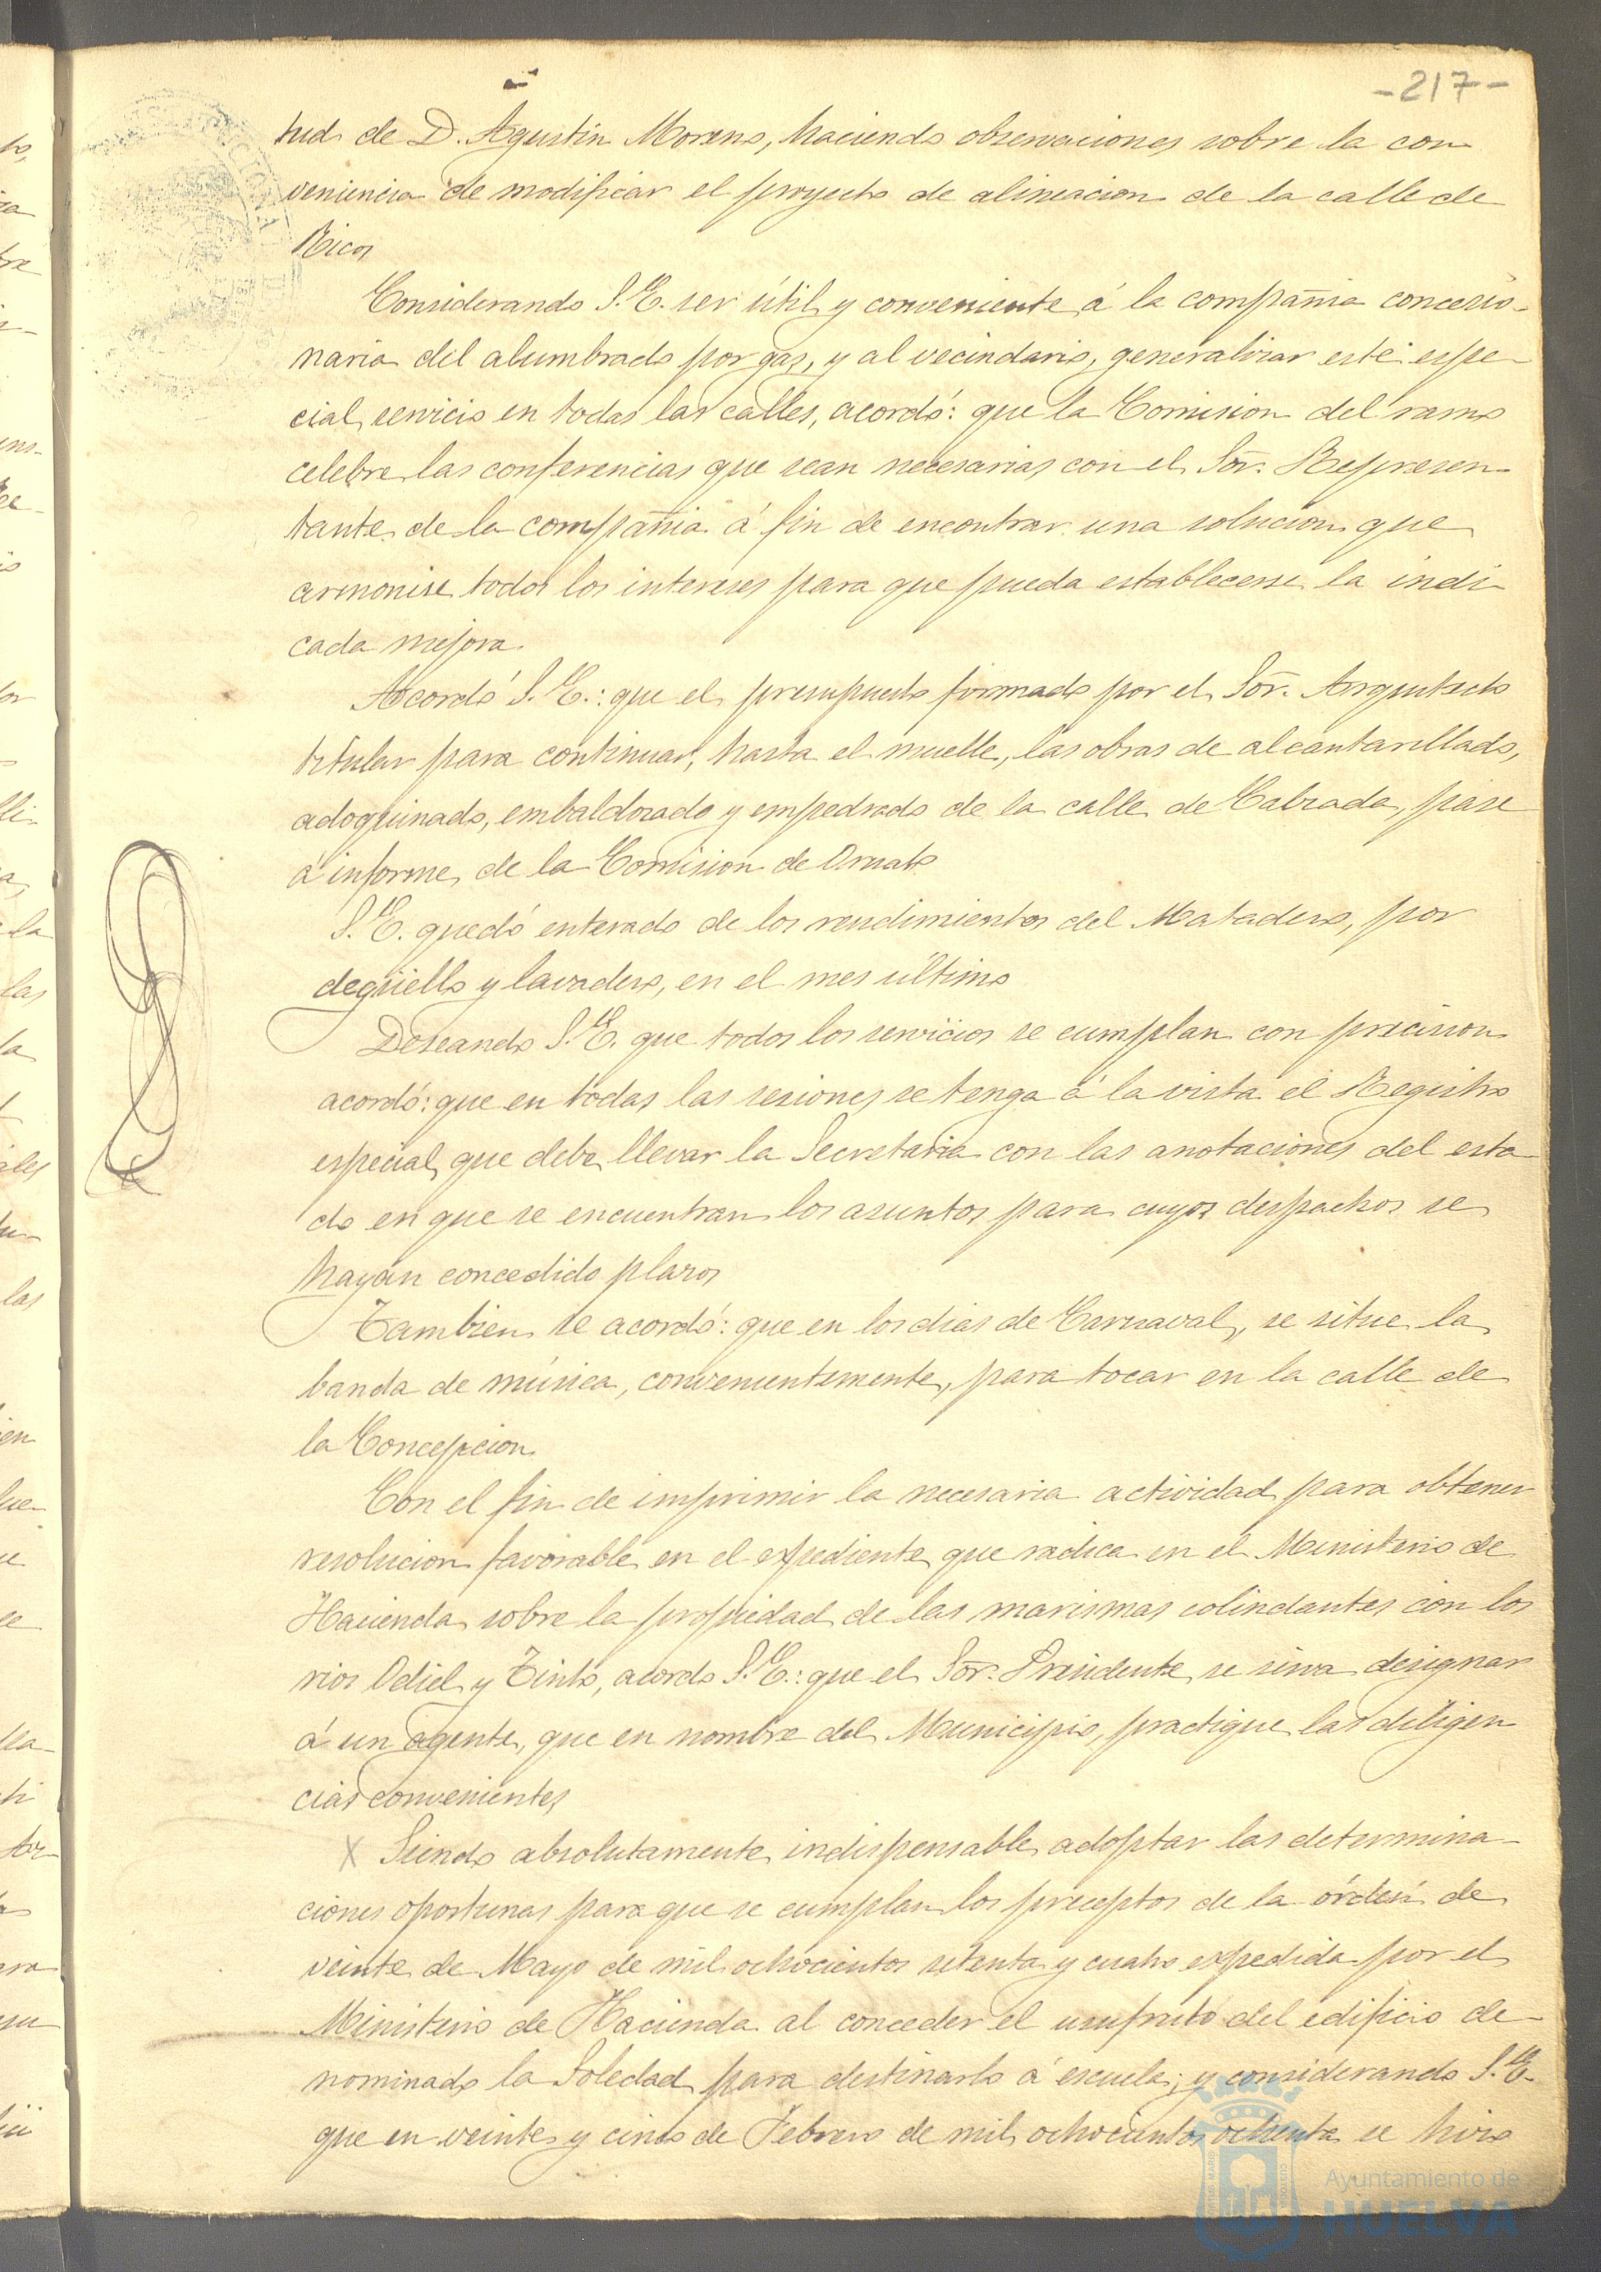 -217-
tud de D. Agustin Moreno, haciendo observaciones sobre la con
veniencia de modificar el proyecto de alineacion de la calle de
Ricos
Considerando S.E. ser útil y conveniente á la compañia concesio-
naria del alumbrado por gas, y al vecindario, generalizar este espe-
cial servicio en todas las calles, acordó: que la Comision del ramo
celebre las conferencias que sean necesarias con el Sor. Represen-
tante de la compañia á fin de encontrar una solucion que
armonise todos los intereses para que pueda establecerse la indi-
cada mejora.
Acordó S.E.: que el presupuesto formado por el Sor. Arquitecto
titular para continuar, hasta el muelle, las obras de alcantarillado,
adoquinado, embaldosado y empedrado de la calle de Calzada, pase
á informe de la Comision de Ornato
S.E. quedó enterado de los rendimientos del Matadero, por
degüello y lavadero, en el mes último
Deseando S.E. que todos los servicios se cumplan con precision
acordó: que en todas las sesiones se tenga á la vista el Registro
especial que debe llevar la Secretaria con las anotaciones del esta-
do en que se encuentran los asuntos para cuyos despachos se
hayan concedido plazos
Tambien se acordó: que en los dias de Carnaval, se situe la
banda de música, convenientemente, para tocar en la calle de
la Concepcion
Con el fin de imprimir la necesaria actividad para obtener
resolucion favorable en el expediente que radica en el Ministerio de
Hacienda sobre la propiedad de las marismas colindantes con los
rios Odiel y Tinto, acordo S.E.: que el Sor. Presidente se sirva designar
á un agente, que en nombre del Municipio, practique las diligen
cias convenientes
X Siendo absolutamente indispensable adoptar las determina-
ciones oportunas para que se cumplan los preceptos de la órden de
veinte de Mayo de mil ochocientos setenta y cuatro expedida por el
Ministerio de Hacienda al conceder el usufruto del edificio de-
nominado la Soledad para destinarlo á escuela; y considerando S.E.
que en veinte y cinco de Febrero de mil ochocientos ochenta se hizo
Ayuntamiento de
HUELVA